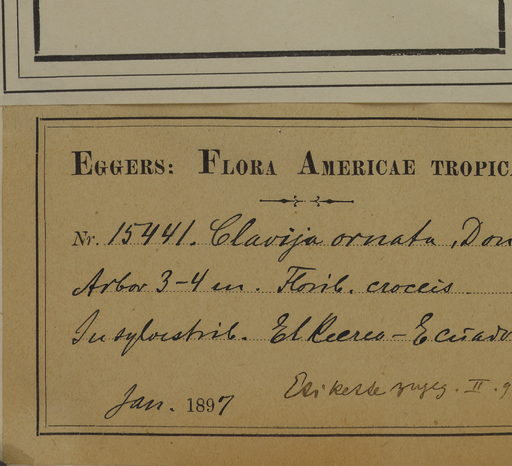 EGGERS: FLORA AMERICAE TROPIC
Nr. 15441. Clavija ornata, Don
Arbor 3-4 m. Florib. croceis
In sylvestrib. El Recreo - Ecuado
Jan. 1897
II.